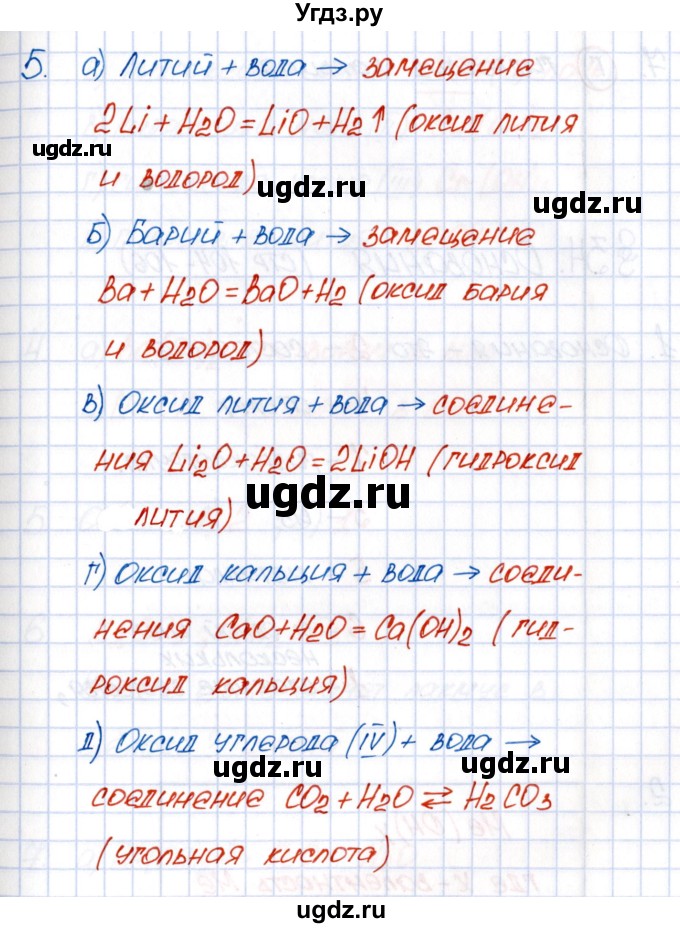 Угдз.ру
5. а) Литий + вода → замещение
2Li + H2O = LiO + H2↑ (оксид лития
ugdz.ru
и водород)
ugdz.ru
Б) Барий + вода → замещение
Ba + H2O = BaO + H2 (оксид бария
и водород)
в) Оксид лития + вода → соедине-
ния Li2O + H2O = 2LiOH (гидроксид
ugdz.ru
лития)
г) Оксид кальция + вода → соеди-
нения CaO + H2O = Ca(OH)2 (гид-
роксид кальция)
д) Оксид углерода (IV) + вода →
ugdz.ru
ugdz.ru
соединение CO2 + H2O ⇄ H2CO3
(угольная кислота)
ugdz.ru
ugdz.ru